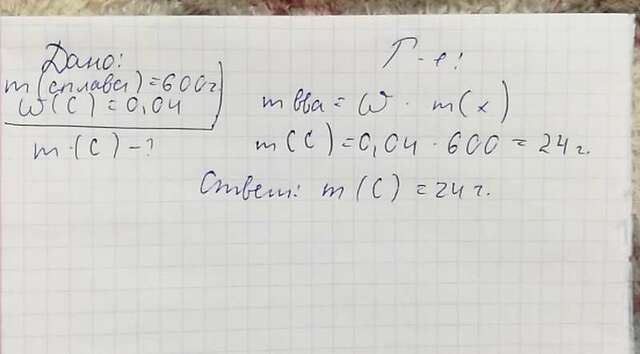 Дано:
m(сплава)=600г
ω(C)=0,04
m·(C)-?
Г-е:
m вва = ω · m(x)
m(C)=0,04·600=24г.
Ответ: m(C)=24г.